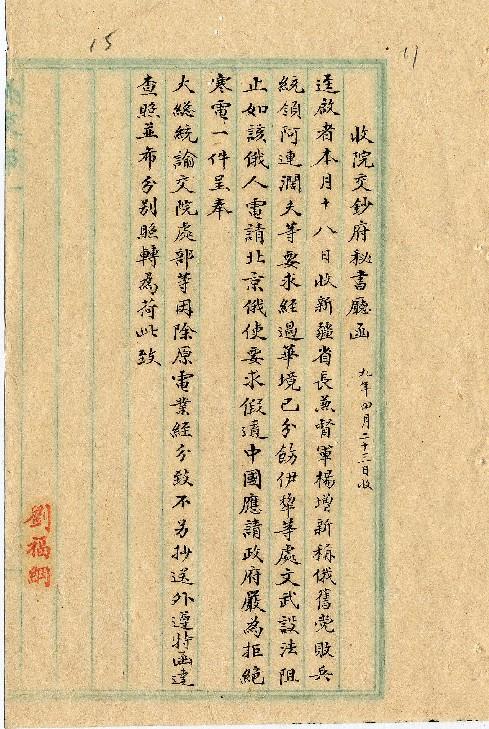 15
收院交鈔府秘書廳函 九年四月二十三日收
逕啟者本月十八日收新疆省長兼督軍楊增新稱俄舊党敗兵
統領阿連潤夫等要求經過華境已分飭伊犂等處文武設法阻
止如該俄人電請北京俄使要求假道中國應請政府嚴為拒絕
寒電一件呈奉
大總統諭交院處部等因除原電業經分致不另抄送外遵特函達
查照並布分別照轉為荷此致
劉福綱